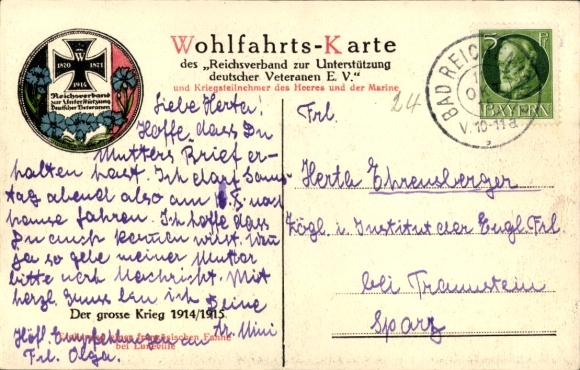 Wohlfahrts-Karte
des „Reichsverband zur Unterstützung
deutscher Veteranen E. V.“
und Kriegsteilnehmer des Heeres und der Marine
W
1870 1871
1914
Reichsverband
zur Unterstützung
Deutscher Veteranen
5 Pf
BAYERN
BAD REICH
V. 10-11 a
24
Liebe Herta!
Hoffe, dass Du
Mutters Brief er-
halten hast. Ich darf Sams-
tag abend also am X. nach
hause fahren. Ich hoffe dass
Du auch kommen willst. Wenn
ja so gebe meiner Mutter
bitte noch Nachricht. Mit
herzl. Gruss bin ich Deine
Mimi
Höfl. Empfehlungen an
Frl. Olga.
Der grosse Krieg 1914/1915
französischen
bei Luneville
Frl.
Herta Ehrensberger
Zögl. i. Institut der Engl. Frl.
bei Traunstein
Sparz